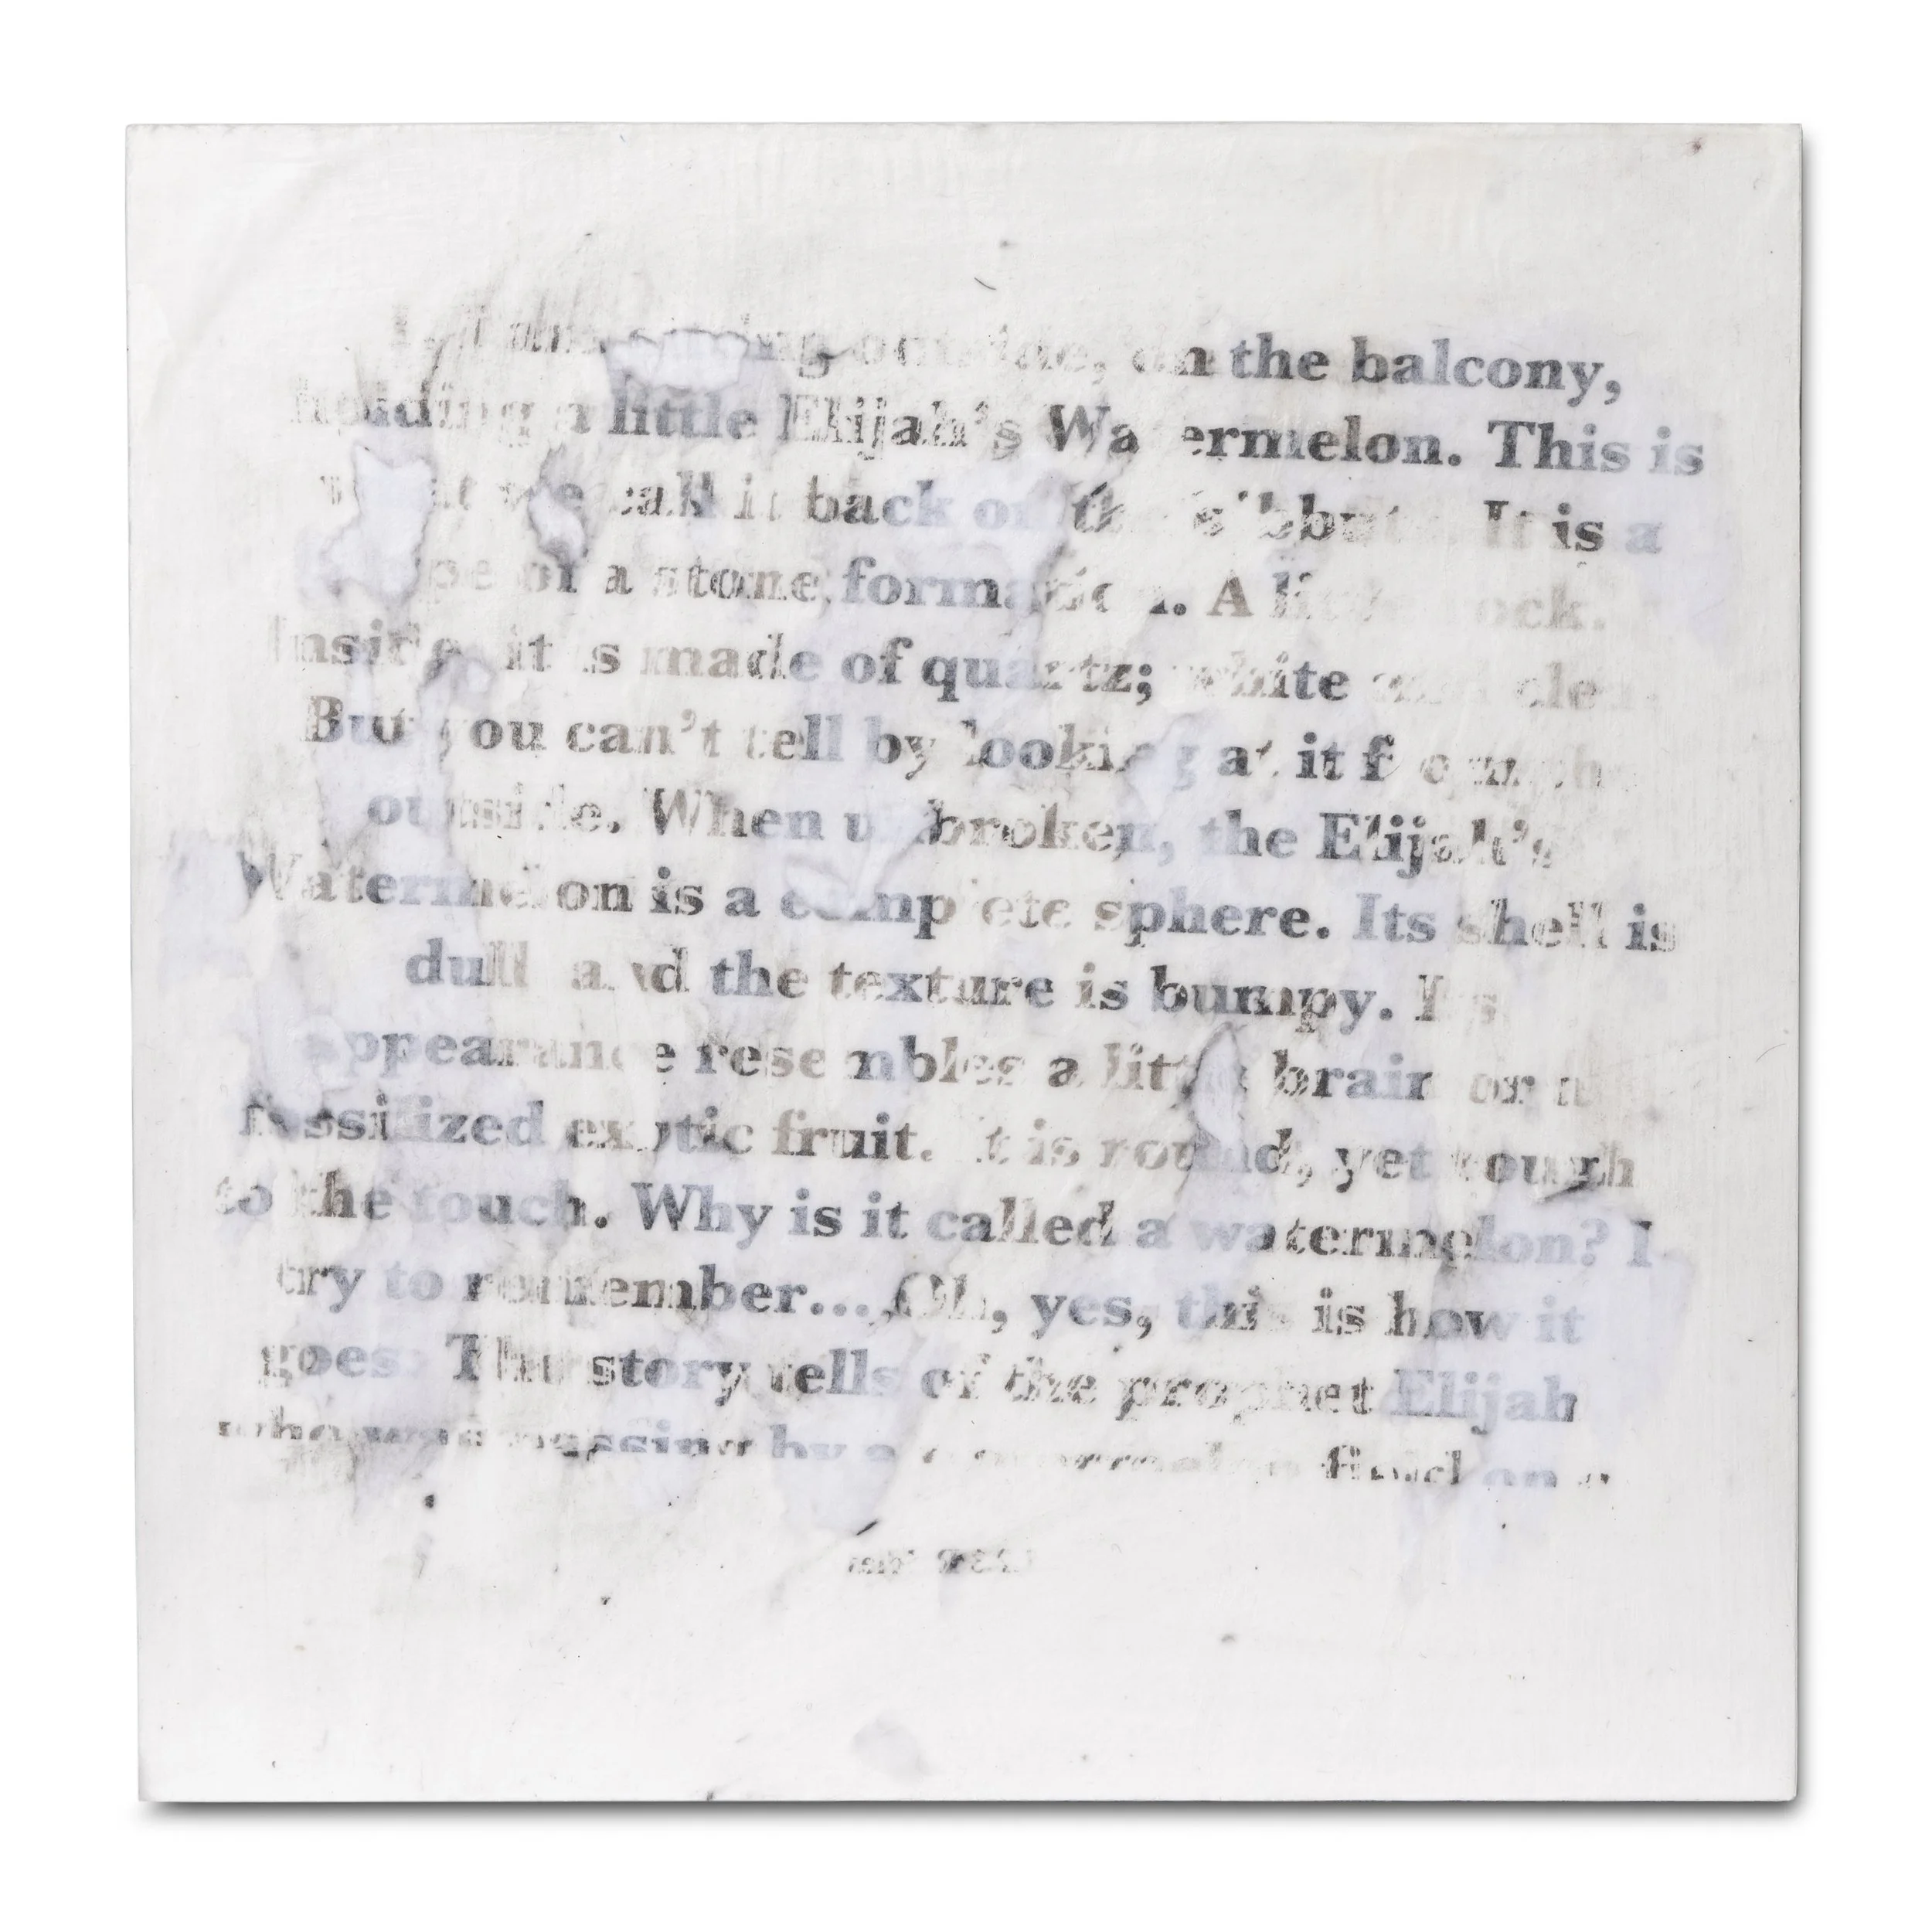 on the balcony,
holding a little Elijah's Watermelon. This is
we call it back on the kibbutz. It is a
of a stone formation. A little rock.
Inside, it is made of quartz; white and clear.
But you can't tell by looking at it from the
outside. When unbroken, the Elijah's
Watermelon is a complete sphere. Its shell is
dull and the texture is bumpy. Its
appearance resembles a little brain or a
fossilized exotic fruit. It is round, yet rough
to the touch. Why is it called a watermelon? I
try to remember... Oh, yes, this is how it
goes: The story tells of the prophet Elijah
who was passing by a watermelon field on a